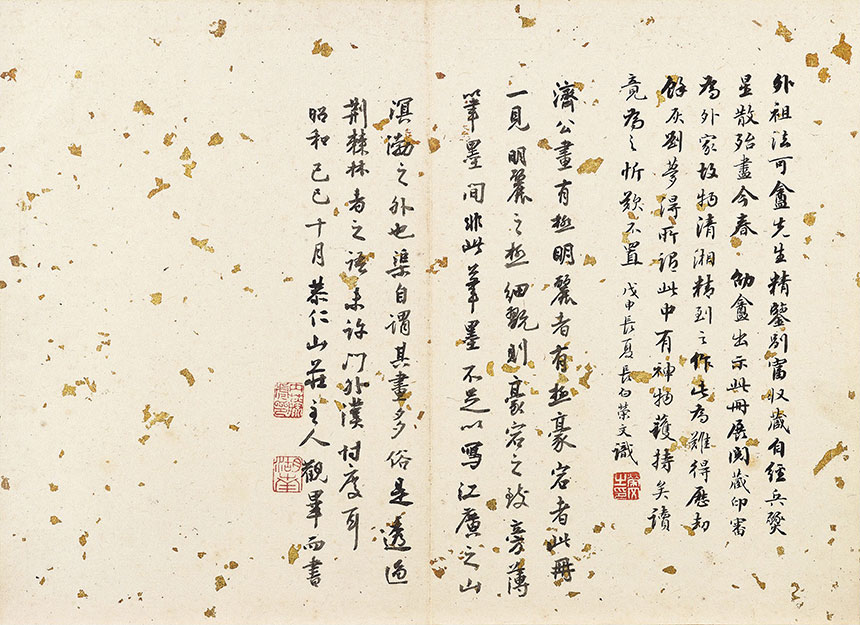 外祖法可盦先生精鑒別富收藏自經兵燹
星散殆盡今春 劬盦出示此冊展閱藏印審
為外家故物清湘精到之作此為難得歷劫
餘灰劉夢得所謂此中有神物護持矣讀
竟為之忻歎不置 戊申長夏長白榮文識
濟公畫有極明麗者有極豪宕者此冊
一見明麗之極細翫則豪宕之致旁薄
筆墨間非此筆墨不足以寫江廣之山
溟渤之外也渠自謂其畫多俗是透過
荊棘林者之語未許門外漢忖度耳
昭和己巳十月恭仁山莊主人觀畢而書